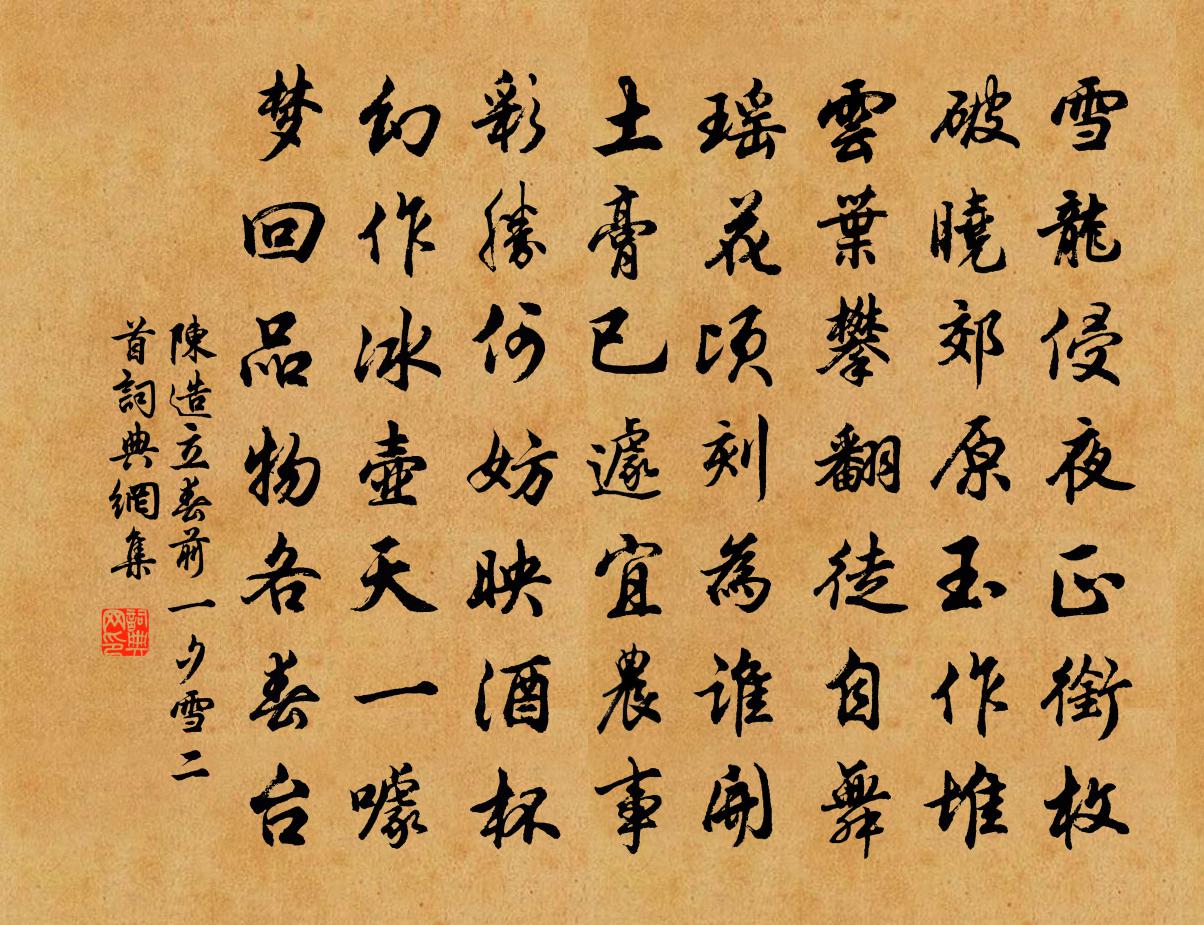 雪龍侵夜正銜枚
破曉郊原玉作堆
雲葉攀翻徒自舞
瑶花頃刻為誰開
土膏已遽宜農事
彩勝何妨映酒杯
幻作冰壺天一噱
梦回品物各春台
陳造立春前一夕雪二
首詞典網集
詞典
网印